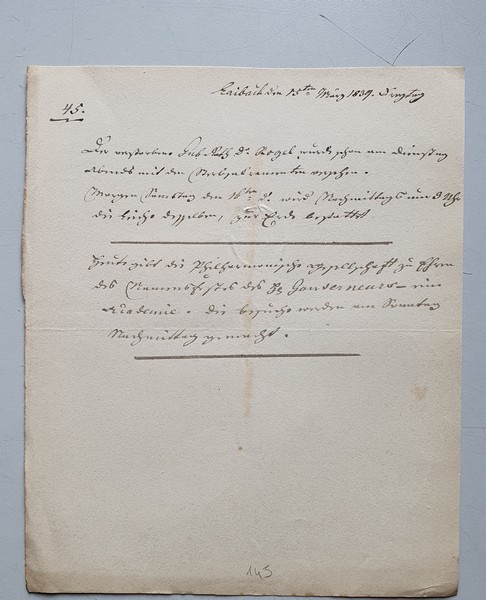 Laibach den 15ten März 1839. Freytag
45.
Der verstorbene Gub. Rath Dr. Vogel wurde schon am Dienstag
Abends mit den Sterbsakramenten versehen.
Morgen Samstag den 16ten d. wird Nachmittags um 3 Uhr
die Leiche desselben, zur Erde bestattet
Heute gibt die Philharmonische Gesellschaft zu Ehren
des Namensfestes des Hr Gouverneurs – eine
Akademie. die besuche werden am Sonntag
Nachmittag gemacht.
143